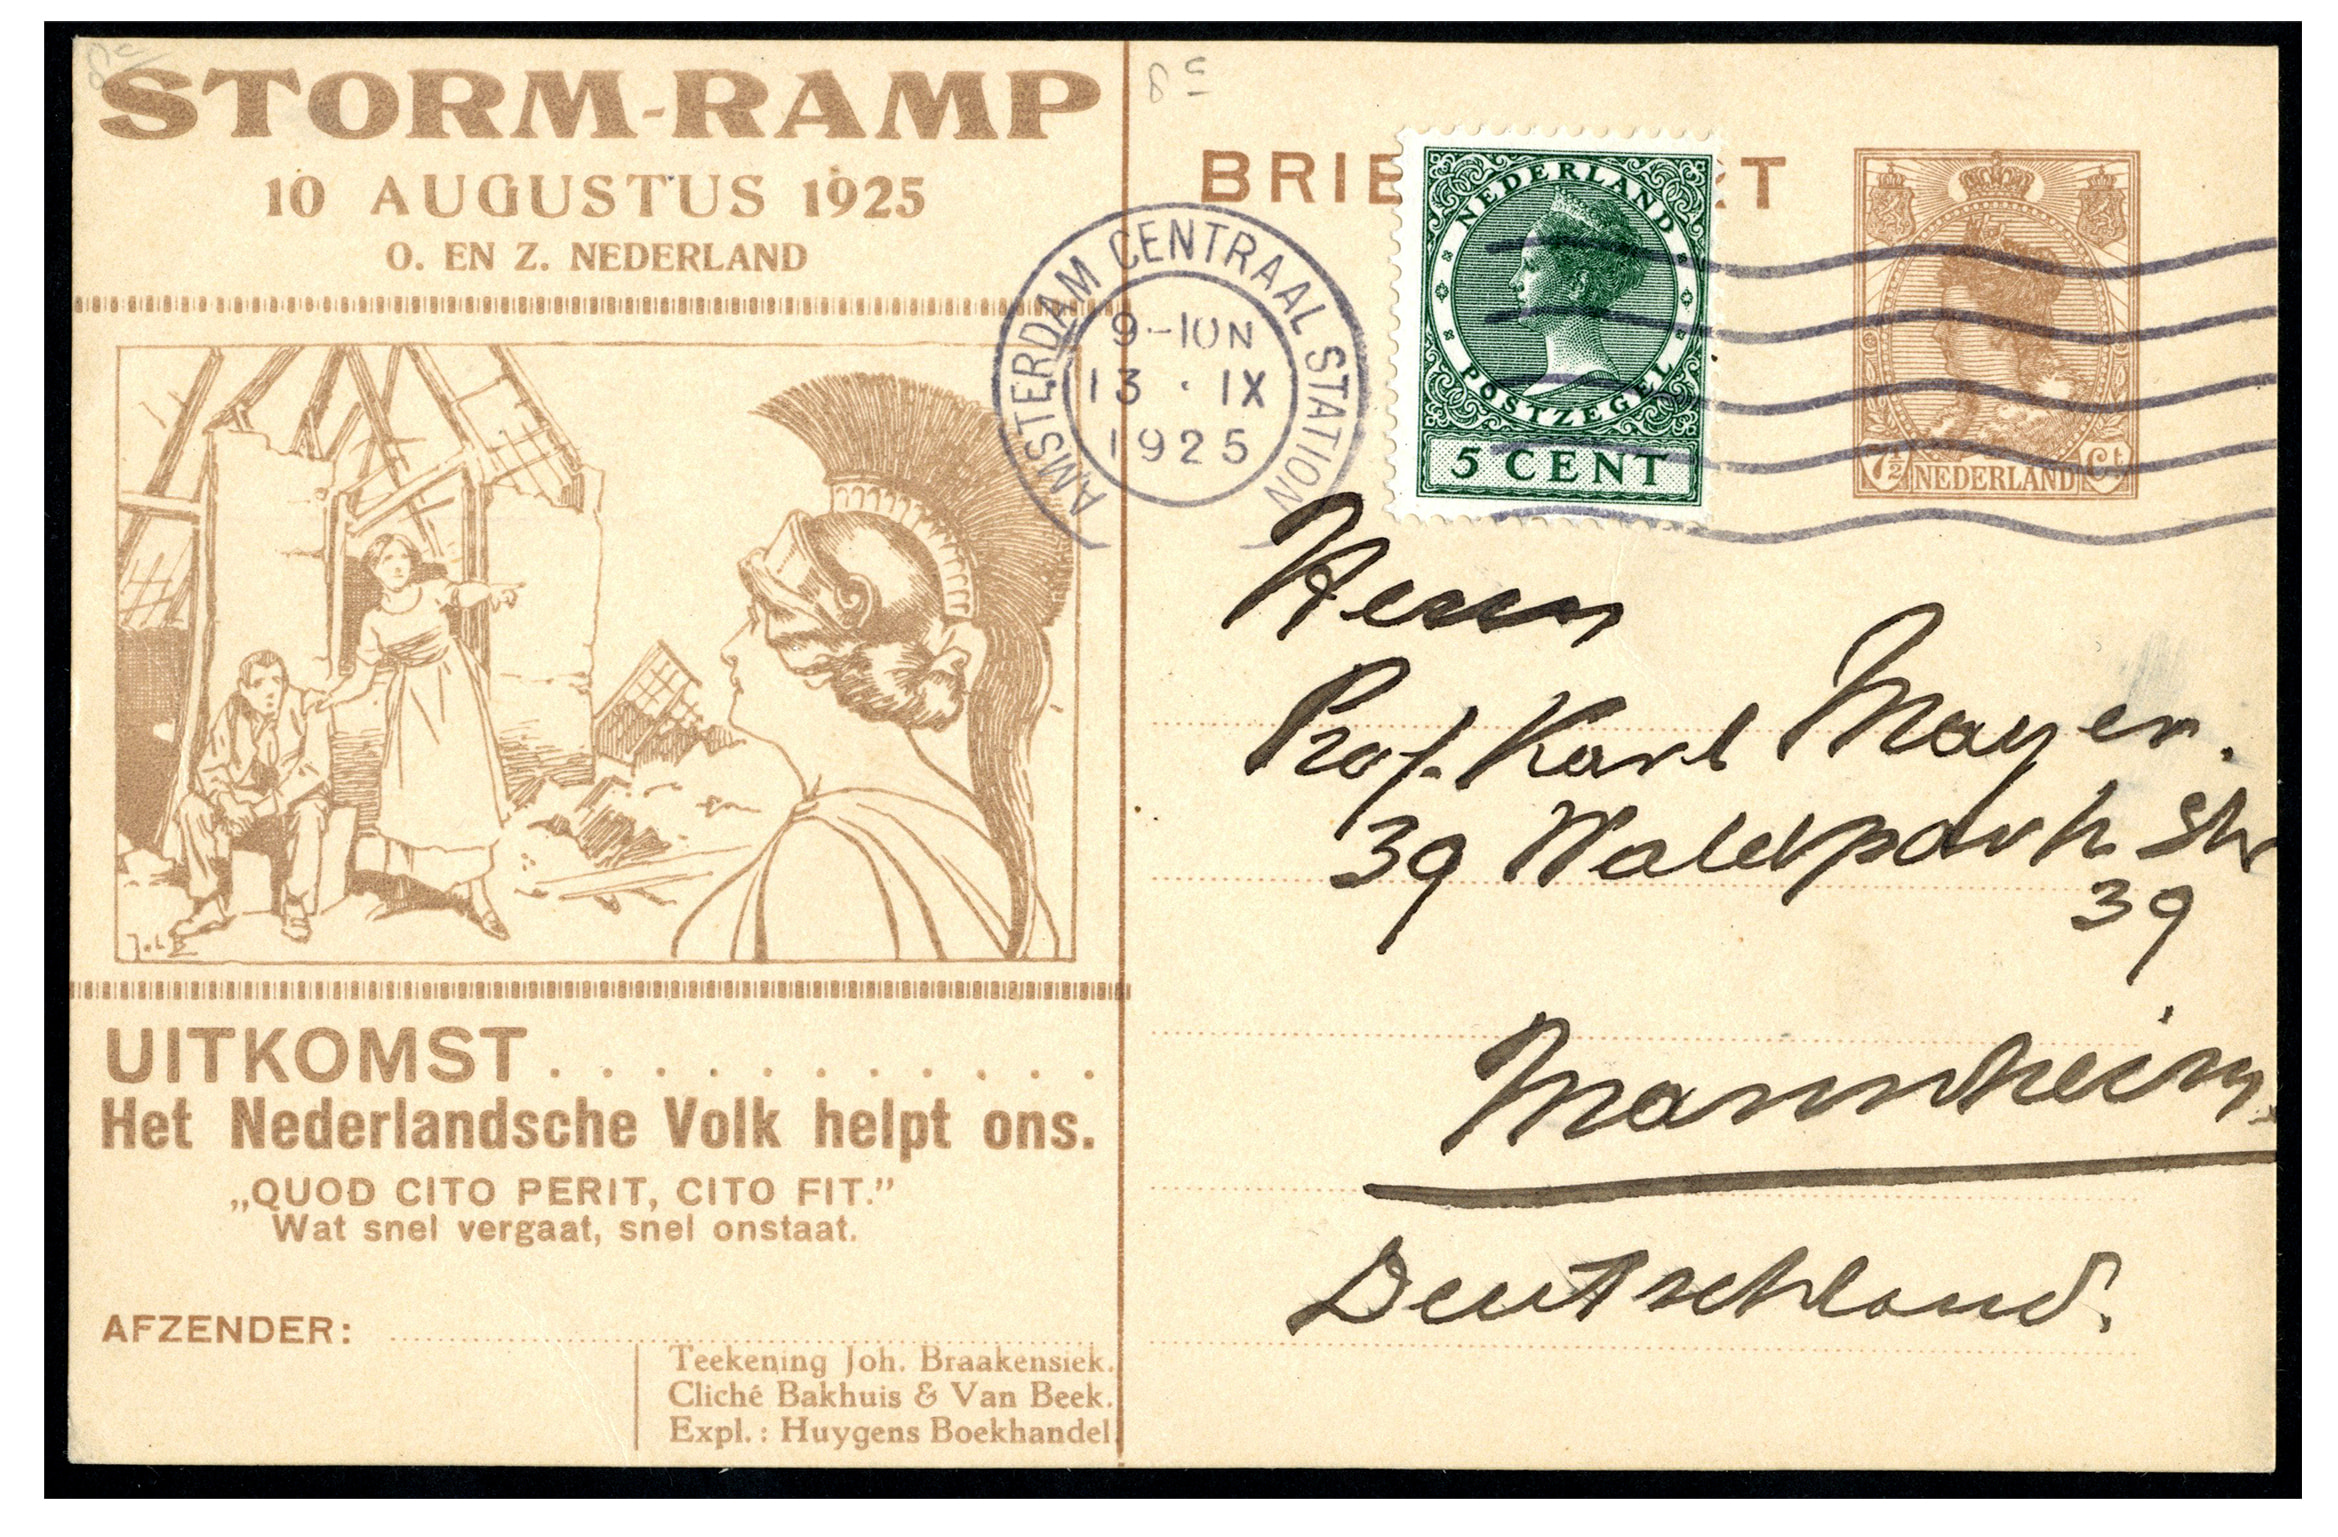 8c
STORM-RAMP
10 AUGUSTUS 1925
O. EN Z. NEDERLAND
UITKOMST . . . . . . . . . . .
Het Nederlandsche Volk helpt ons.
„QUOD CITO PERIT, CITO FIT.”
Wat snel vergaat, snel onstaat.
AFZENDER:
Teekening Joh. Braakensiek.
Cliché Bakhuis & Van Beek.
Expl.: Huygens Boekhandel.
8c
BRIE RT
AMSTERDAM CENTRAAL STATION
9-10N
13 · IX
1925
NEDERLAND
POSTZEGEL
5 CENT
7½ NEDERLAND Ct
Herrn
Prof. Karl Mayer.
39 Waldpark Str
39
Mannheim.
Deutschland.